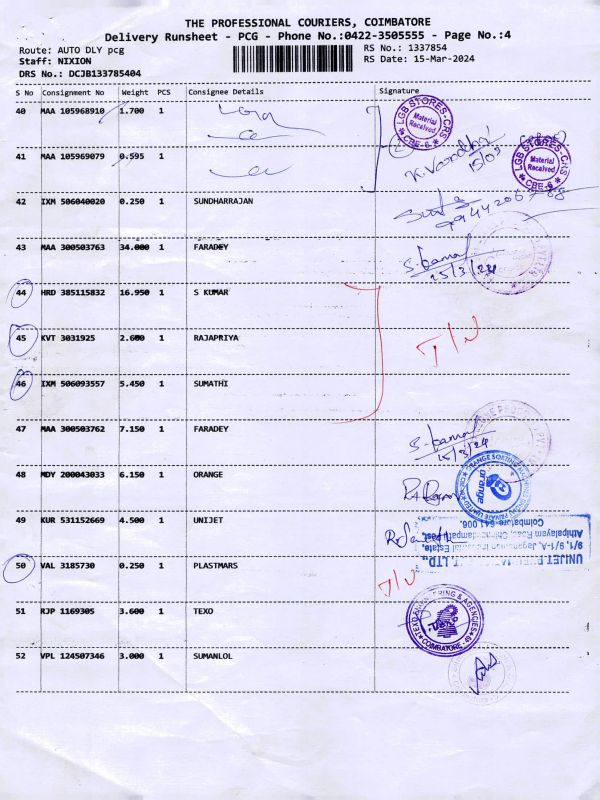 THE PROFESSIONAL COURIERS, COIMBATORE
Delivery Runsheet - PCG - Phone No.:0422-3505555 - Page No.:4
Route: AUTO DLY pcg
RS No.: 1337854
Staff: NIXION
RS Date: 15-Mar-2024
DRS No.: DCJB133785404
S No Consignment No Weight PCS Consignee Details Signature
40 MAA 105968910 1.700 1
LGB STORES-CRS Material Received CBE-6
K. Vandhi
15/03
41 MAA 105969079 0.595 1
LGB STORES-CRS Material Received CBE-6
42 IXM 506040020 0.250 1 SUNDHARRAJAN
43 MAA 300503763 34.000 1 FARADEY
15/3/24
44 HRD 385115832 16.950 1 S KUMAR
45 KVT 3031925 2.600 1 RAJAPRIYA
T/N
46 IXM 506093557 5.450 1 SUMATHI
47 MAA 300503762 7.150 1 FARADEY
15/3/24
48 MDY 200043033 6.150 1 ORANGE
orange
49 KUR 531152669 4.500 1 UNIJET
UNIJET
9/1, 9/1-A,
Athipalayam Road,
Coimbatore-641 006.
50 VAL 3185730 0.250 1 PLASTMARS
T/N
51 RJP 1169305 3.600 1 TEXO
COIMBATORE
52 VPL 124507346 3.000 1 SUMANLOL